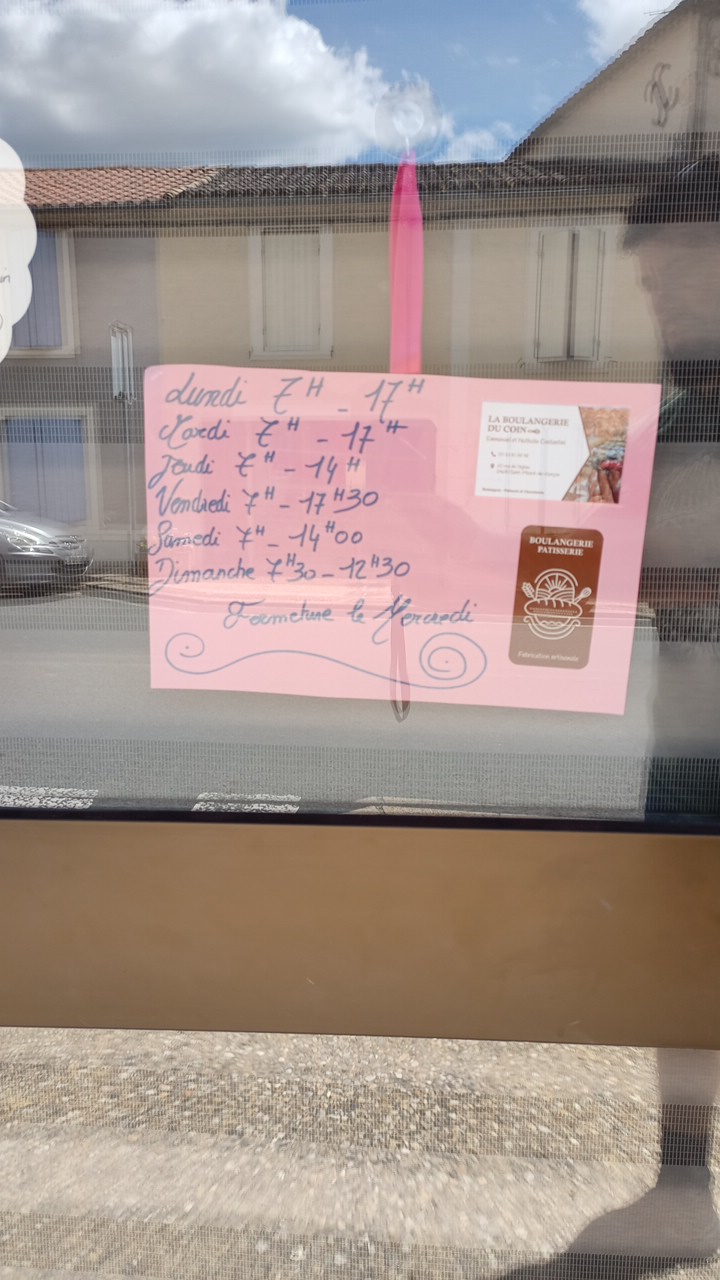 Lundi 7H - 17H
Mardi 7H - 17H
Jeudi 7H - 14H
Vendredi 7H - 17H30
Samedi 7H - 14H00
Dimanche 7H30 - 12H30
Fermeture le Mercredi
LA BOULANGERIE
DU COIN
BOULANGERIE
PATISSERIE
Fabrication artisanale